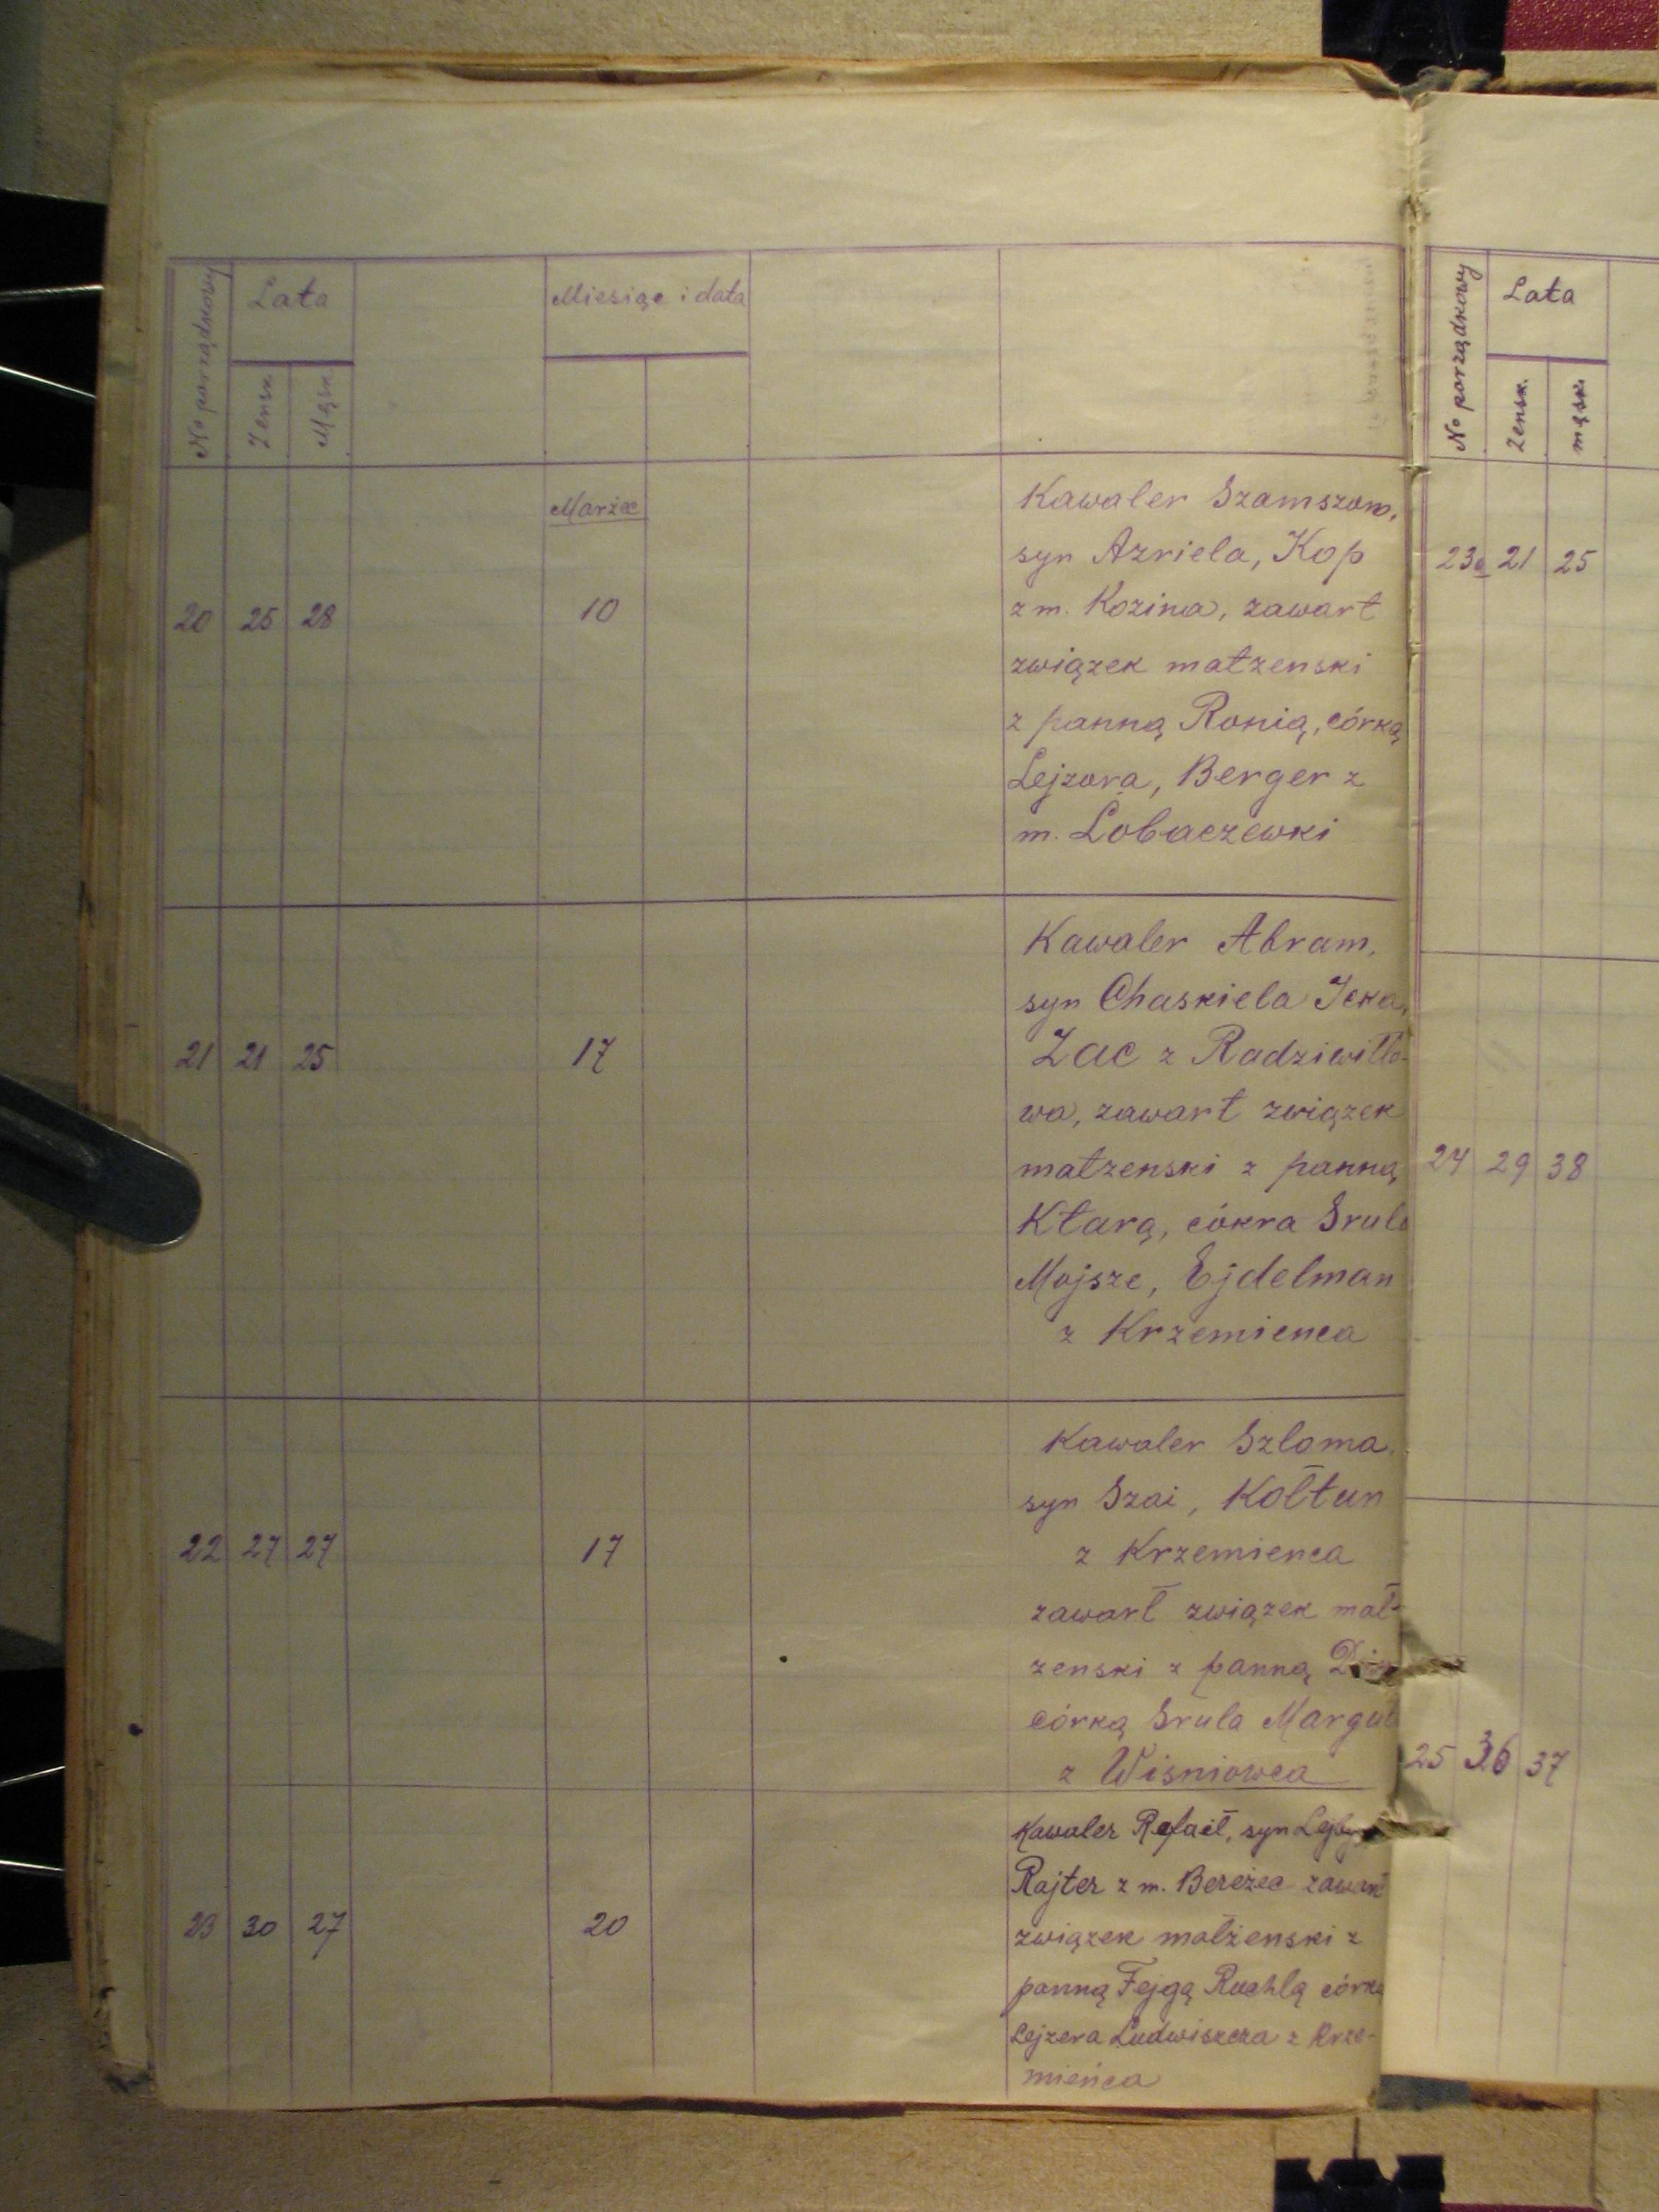 No porządkowy
Lata
Żensk.
Męsk.
Miesiąc i data
Marzec
20 25 28 10
Kawaler Szamszon,
syn Azriela, Kop
z m. Kozina, zawarł
związek małzenski
z panną Ronią, córką
Lejzora, Berger z
m. Łobaczewki
21 21 25 17
Kawaler Abram,
syn Chaskiela Icka,
Zac z Radziwiłło-
wa, zawarł związek
małzenski z panną
Kłarą, córka Srula
Mojsze, Ejdelman
z Krzemienca
22 27 27 17
Kawaler Szloma
syn Szai, Kołtun
z Krzemienca
zawarł związek mał-
zenski z panną
córką Srula
z Wisniowca
23 30 27 20
Kawaler Refaił, syn
Rajter z m. Bereżec zawarł
związek małżenski z
panną Fejgą Ruchlą córką
Lejzera Ludwiszcza z Krze-
mieńca
No porządkowy
Lata
Żensk.
męsk.
23a 21 25
24 29 38
25 36 37